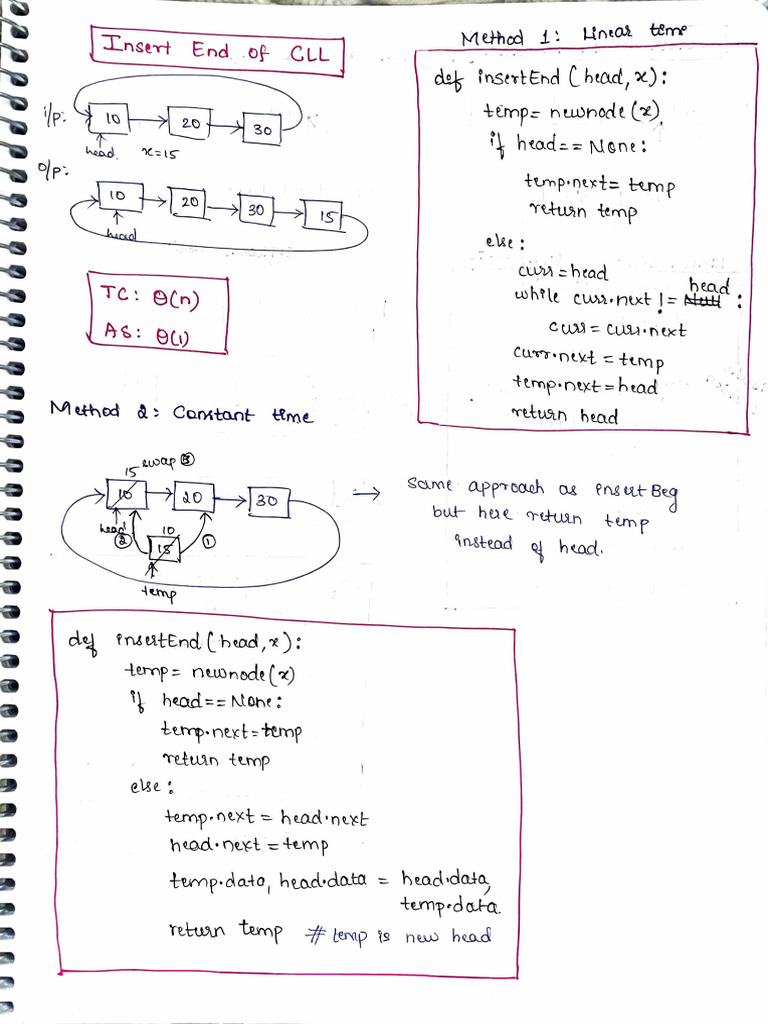 Insert End of CLL
i/p:
10
20
30
head
x=15
o/p:
10
20
30
15
head
TC: θ(n)
AS: θ(1)
Method 1: Linear time
def insertEnd(head,x):
temp=newnode(x)
if head==None:
temp.next=temp
return temp
else:
curr=head
head
while curr.next != Null :
curr=curr.next
curr.next=temp
temp.next=head
return head
Method 2: Constant time
15 swap ③
10
20
30
head
②
10
15
①
temp
→ Same approach as insertBeg
but here return temp
instead of head.
def insertEnd(head,x):
temp=newnode(x)
if head==None:
temp.next=temp
return temp
else:
temp.next=head.next
head.next=temp
temp.data, head.data = head.data,
temp.data.
return temp # temp is new head